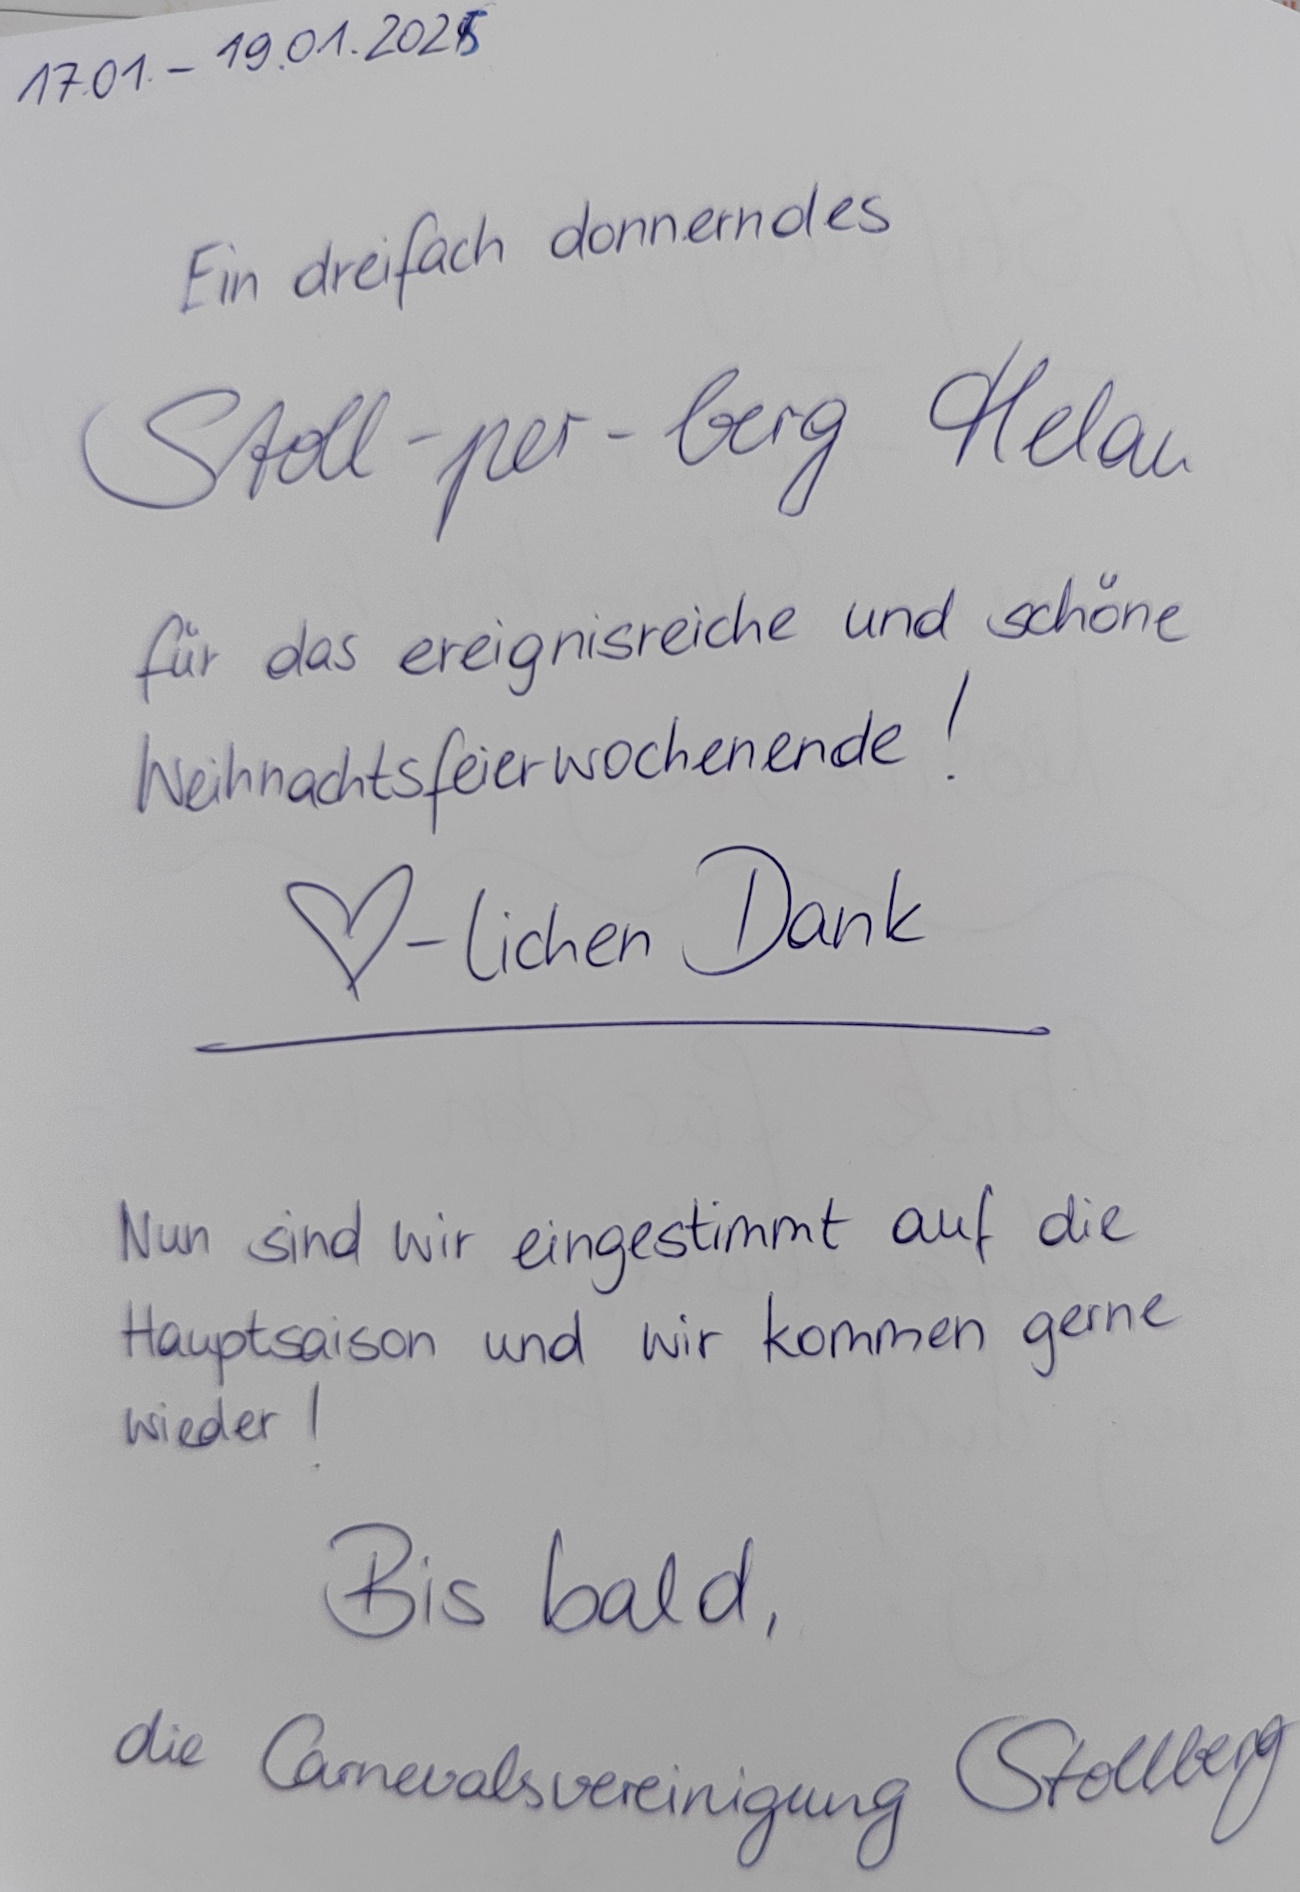 17.01. – 19.01.2025
Ein dreifach donnerndes
Stoll-per-berg Helau
für das ereignisreiche und schöne
Weihnachtsfeierwochenende!
♡-lichen Dank
Nun sind wir eingestimmt auf die
Hauptsaison und wir kommen gerne
wieder!
Bis bald,
die Carnevalsvereinigung Stollberg